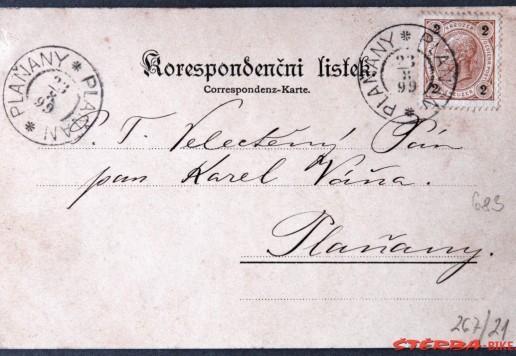 PLAŇANY * PLAŇAN *
23
8
99
Korespondenční lístek.
Correspondenz-Karte.
PLAŇANY * PLAŇAN *
23
8
99
KREUZER
2 2
P. T. Velectěný Pán
pan Karel Váňa.
683
Plaňany.
267/21
ŠTĚRBA-BIKE